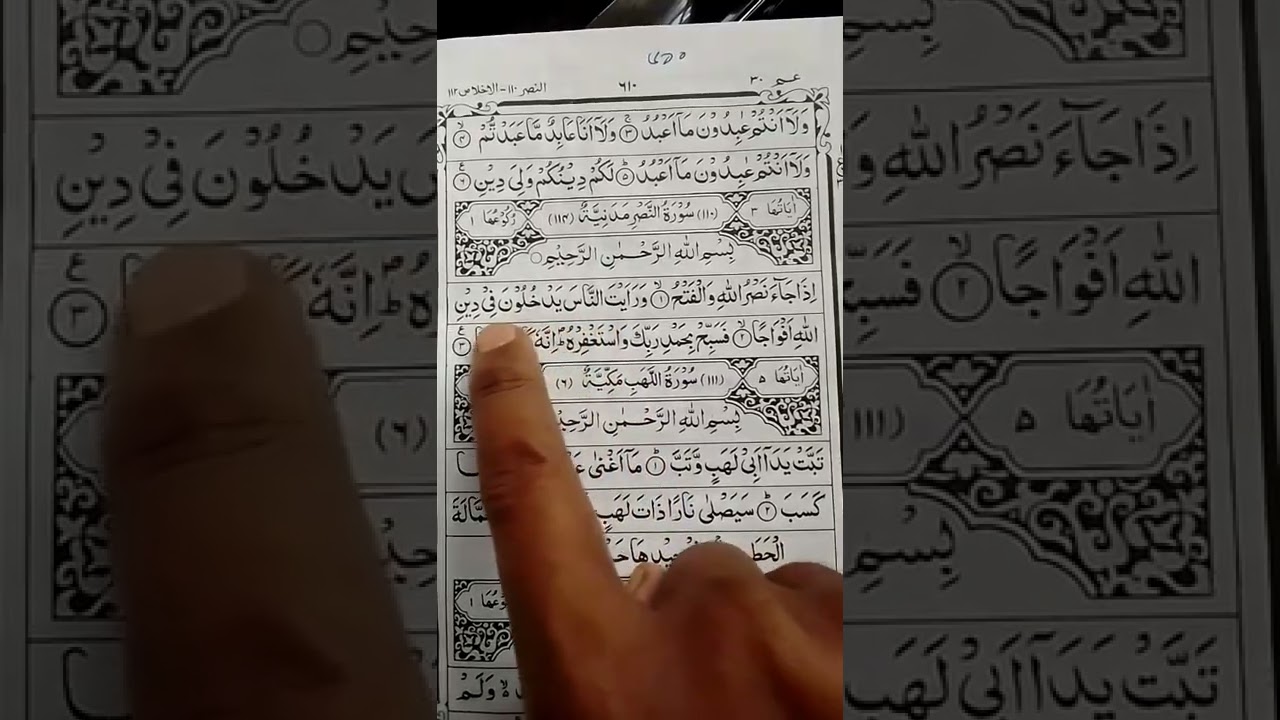 ٦١٠
عـم ٣٠
النصر ١١٠ - الاخلاص ١١٢
وَلَآ اَنْتُمْ عٰبِدُوْنَ مَآ اَعْبُدُ ۚ‏﴿۳﴾ وَلَآ اَنَا عَابِدٌ مَّا عَبَدْتُّمْ ۙ‏﴿۴﴾
وَلَآ اَنْتُمْ عٰبِدُوْنَ مَآ اَعْبُدُ ؕ‏﴿۵﴾ لَكُمْ دِيْنُكُمْ وَلِيَ دِيْنِ ﴿۶﴾ ع
اٰيَاتُهَا ٣ (١١٠) سُوْرَةُ النَّصْرِ مَدَنِيَّةٌ (١١٤) رُكُوْعُهَا ١
بِسْمِ اللّٰهِ الرَّحْمٰنِ الرَّحِيْمِ ○
اِذَا جَآءَ نَصْرُ اللّٰهِ وَالْفَتْحُ ۙ‏﴿۱﴾ وَرَاَيْتَ النَّاسَ يَدْخُلُوْنَ فِيْ دِيْنِ
اللّٰهِ اَفْوَاجًا ۙ‏﴿۲﴾ فَسَبِّحْ بِحَمْدِ رَبِّكَ وَاسْتَغْفِرْهُ ؕ اِنَّهٗ ﴿۳﴾ ع
اٰيَاتُهَا ٥ (١١١) سُوْرَةُ اللَّهَبِ مَكِّيَّةٌ (٦)
بِسْمِ اللّٰهِ الرَّحْمٰنِ
تَبَّتْ يَدَآ اَبِيْ لَهَبٍ وَّتَبَّ ؕ‏﴿۱﴾ مَآ اَغْنٰى
كَسَبَ ؕ‏﴿۲﴾ سَيَصْلٰى نَارًا ذَاتَ لَهَبٍ